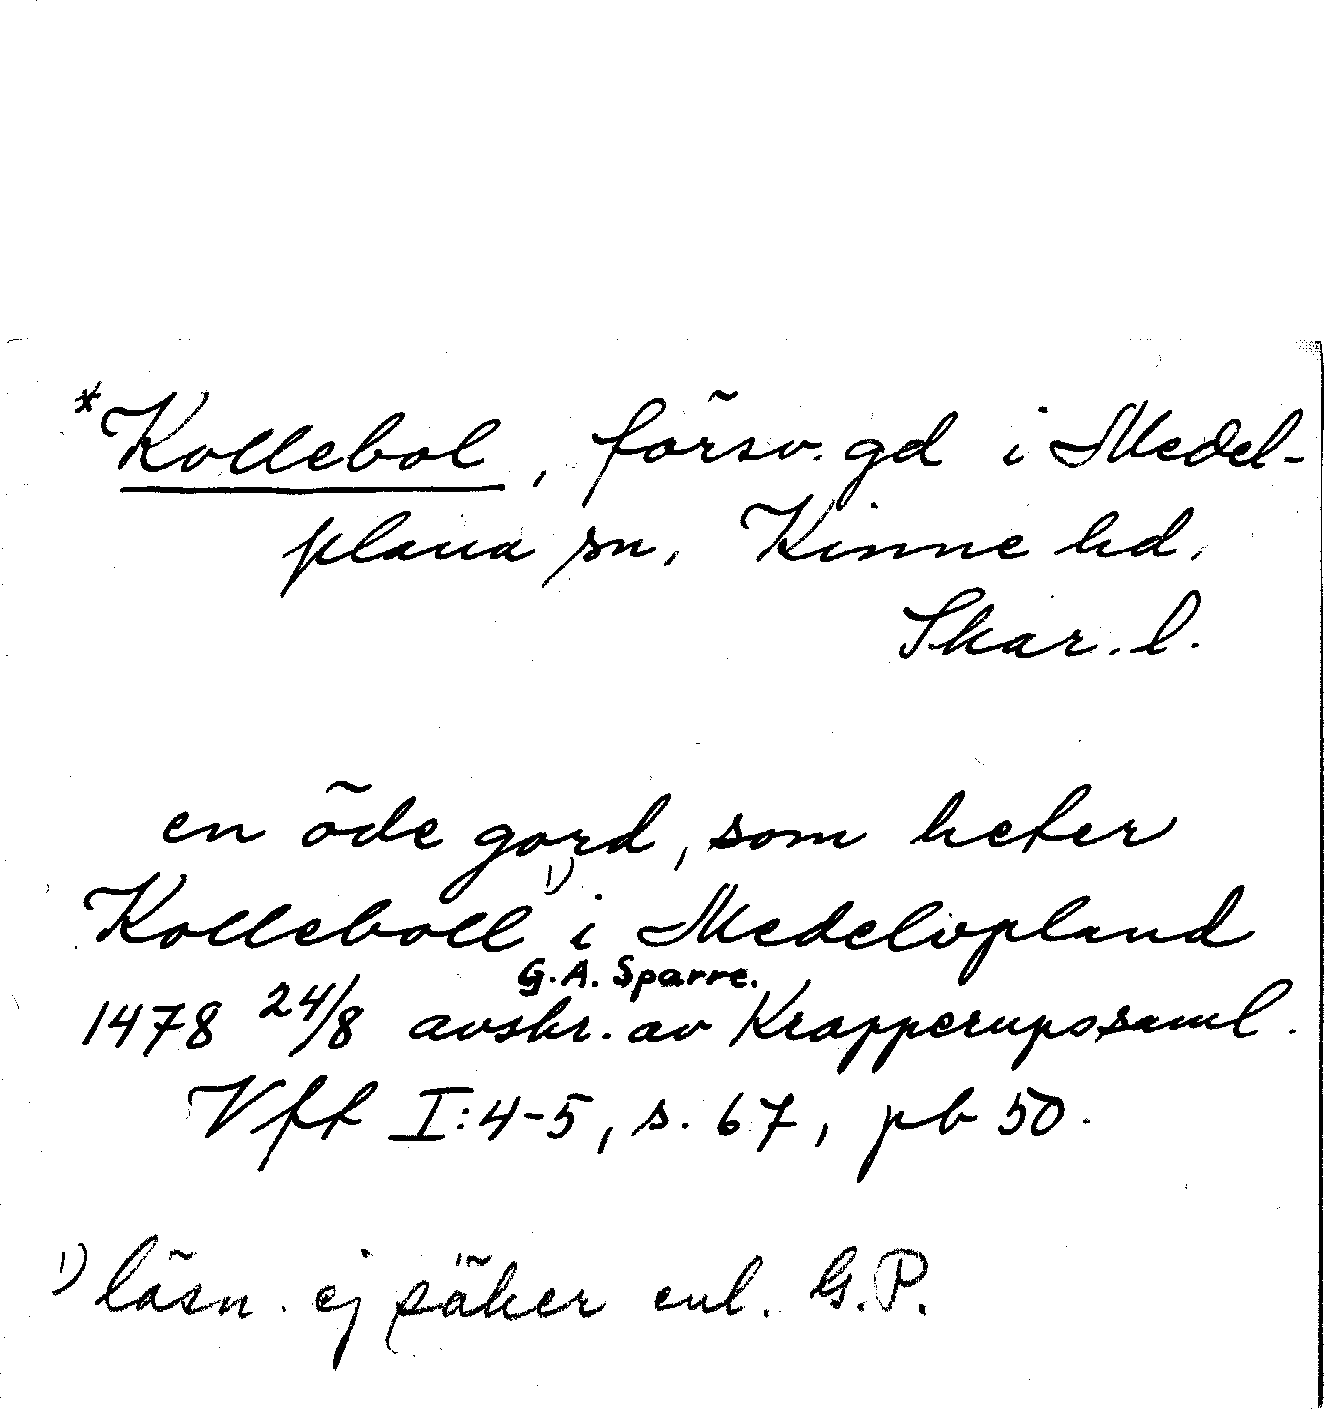 *Kollebol, försv. gd i Medel-
plana sn, Kinne hd.
Skar. l.
en öde gord, som heter
Kolleboll ¹⁾ i Medelvpland
G. A. Sparre.
1478 24/8 avskr. av Krapperupssaml.
Vft I:4-5, s. 67, pb 50.
¹⁾ läsn. ej säker enl. G.P.